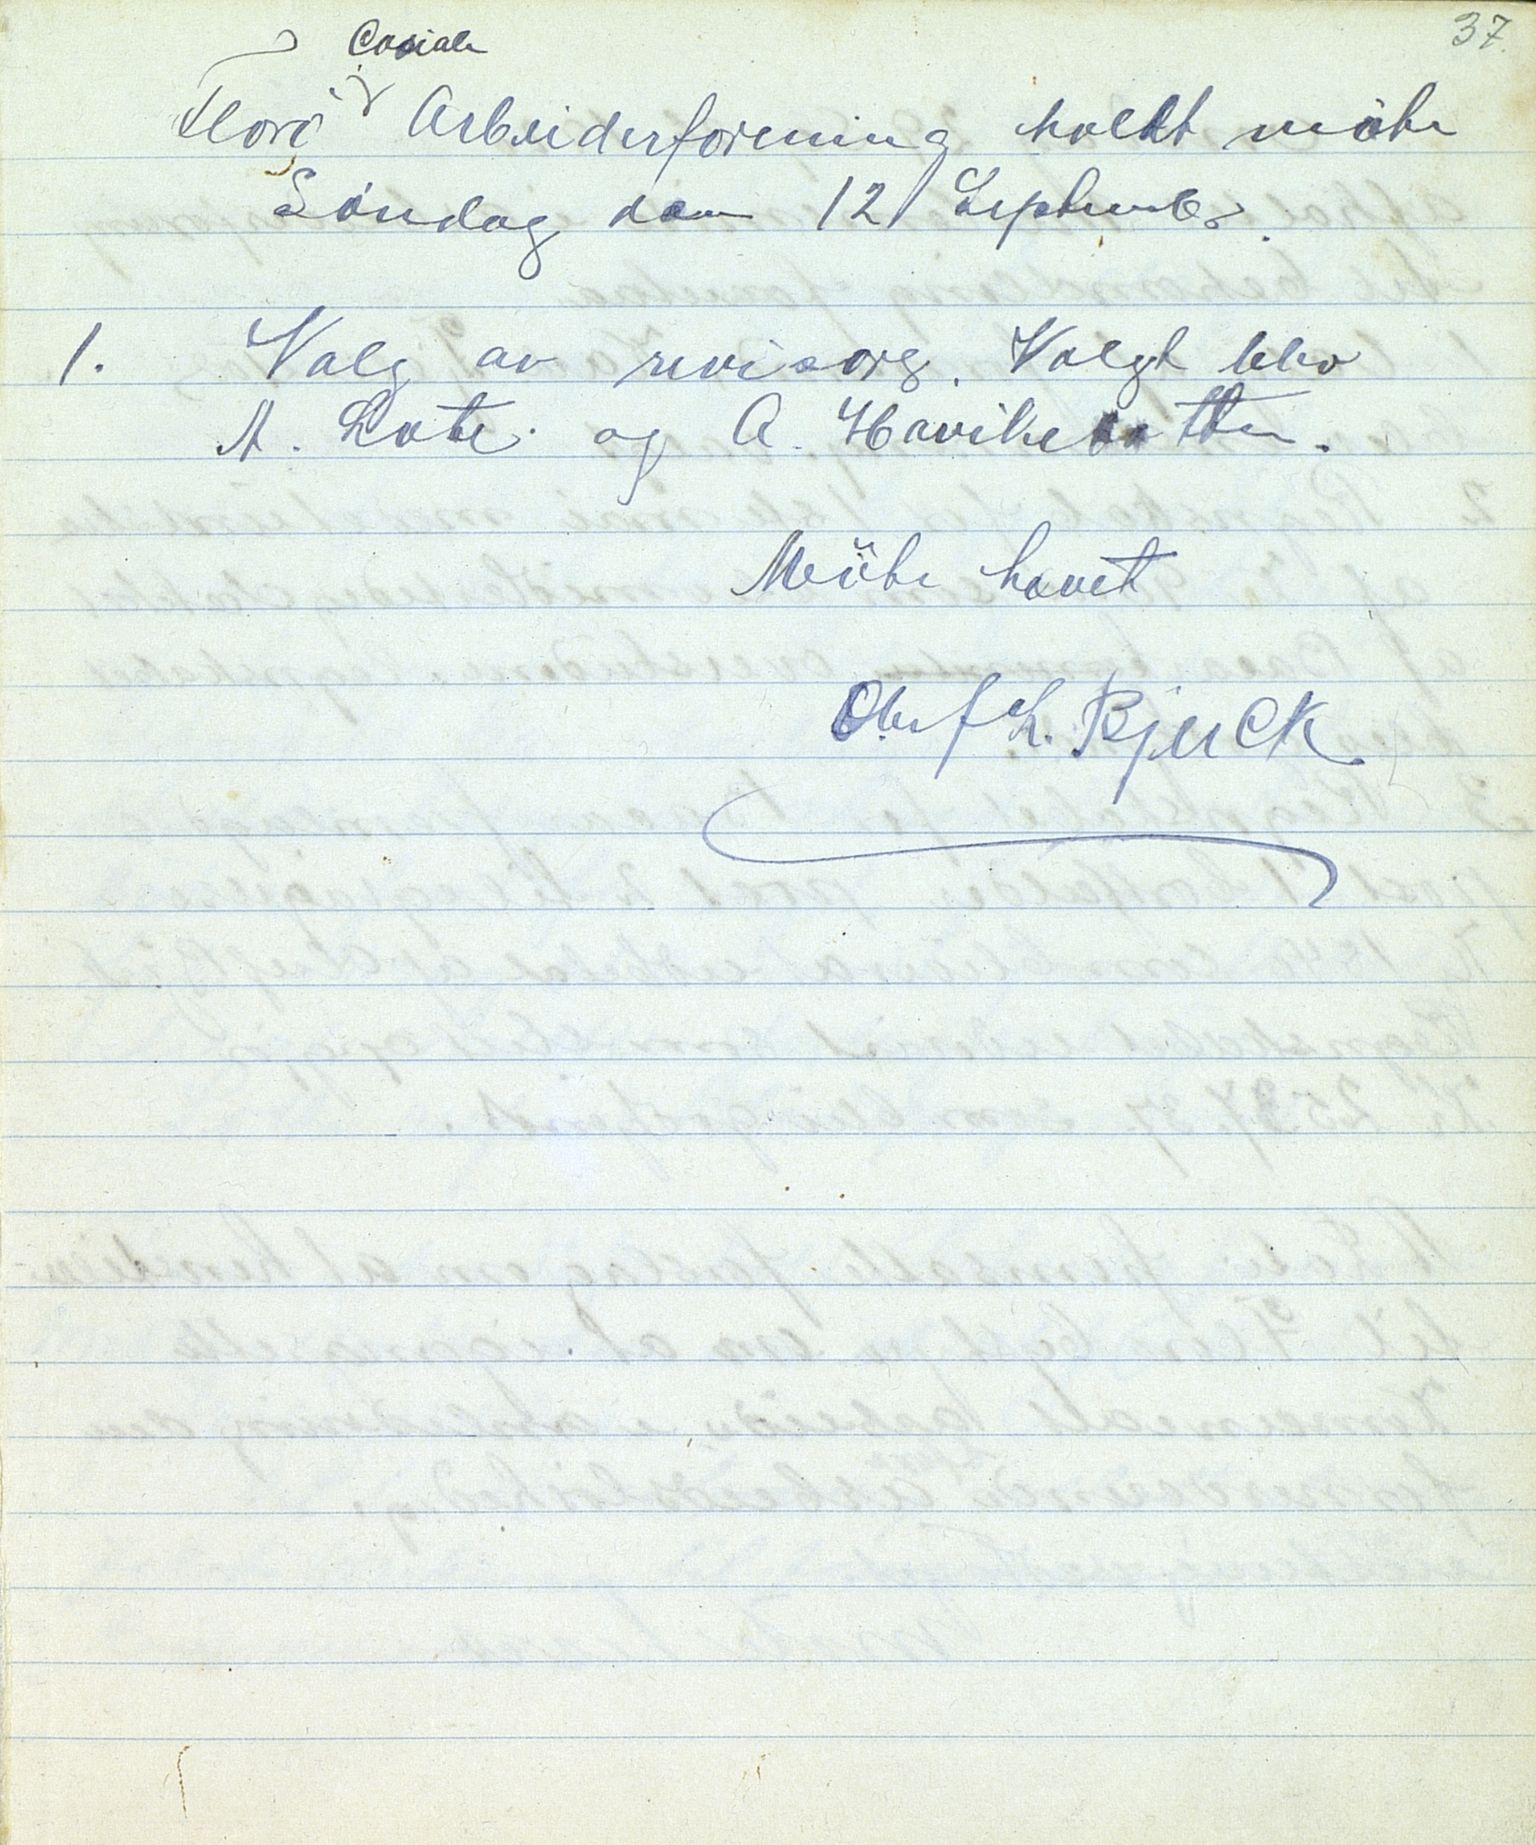 37.
Cosiale
Florö Arbeiderforening holdt möte
Söndag den 12 September.
1. Valg av revisorg. Valgt blev
A. Lote. og A. Havikbotten.
Möte hevet
Oluf L. Bjerck